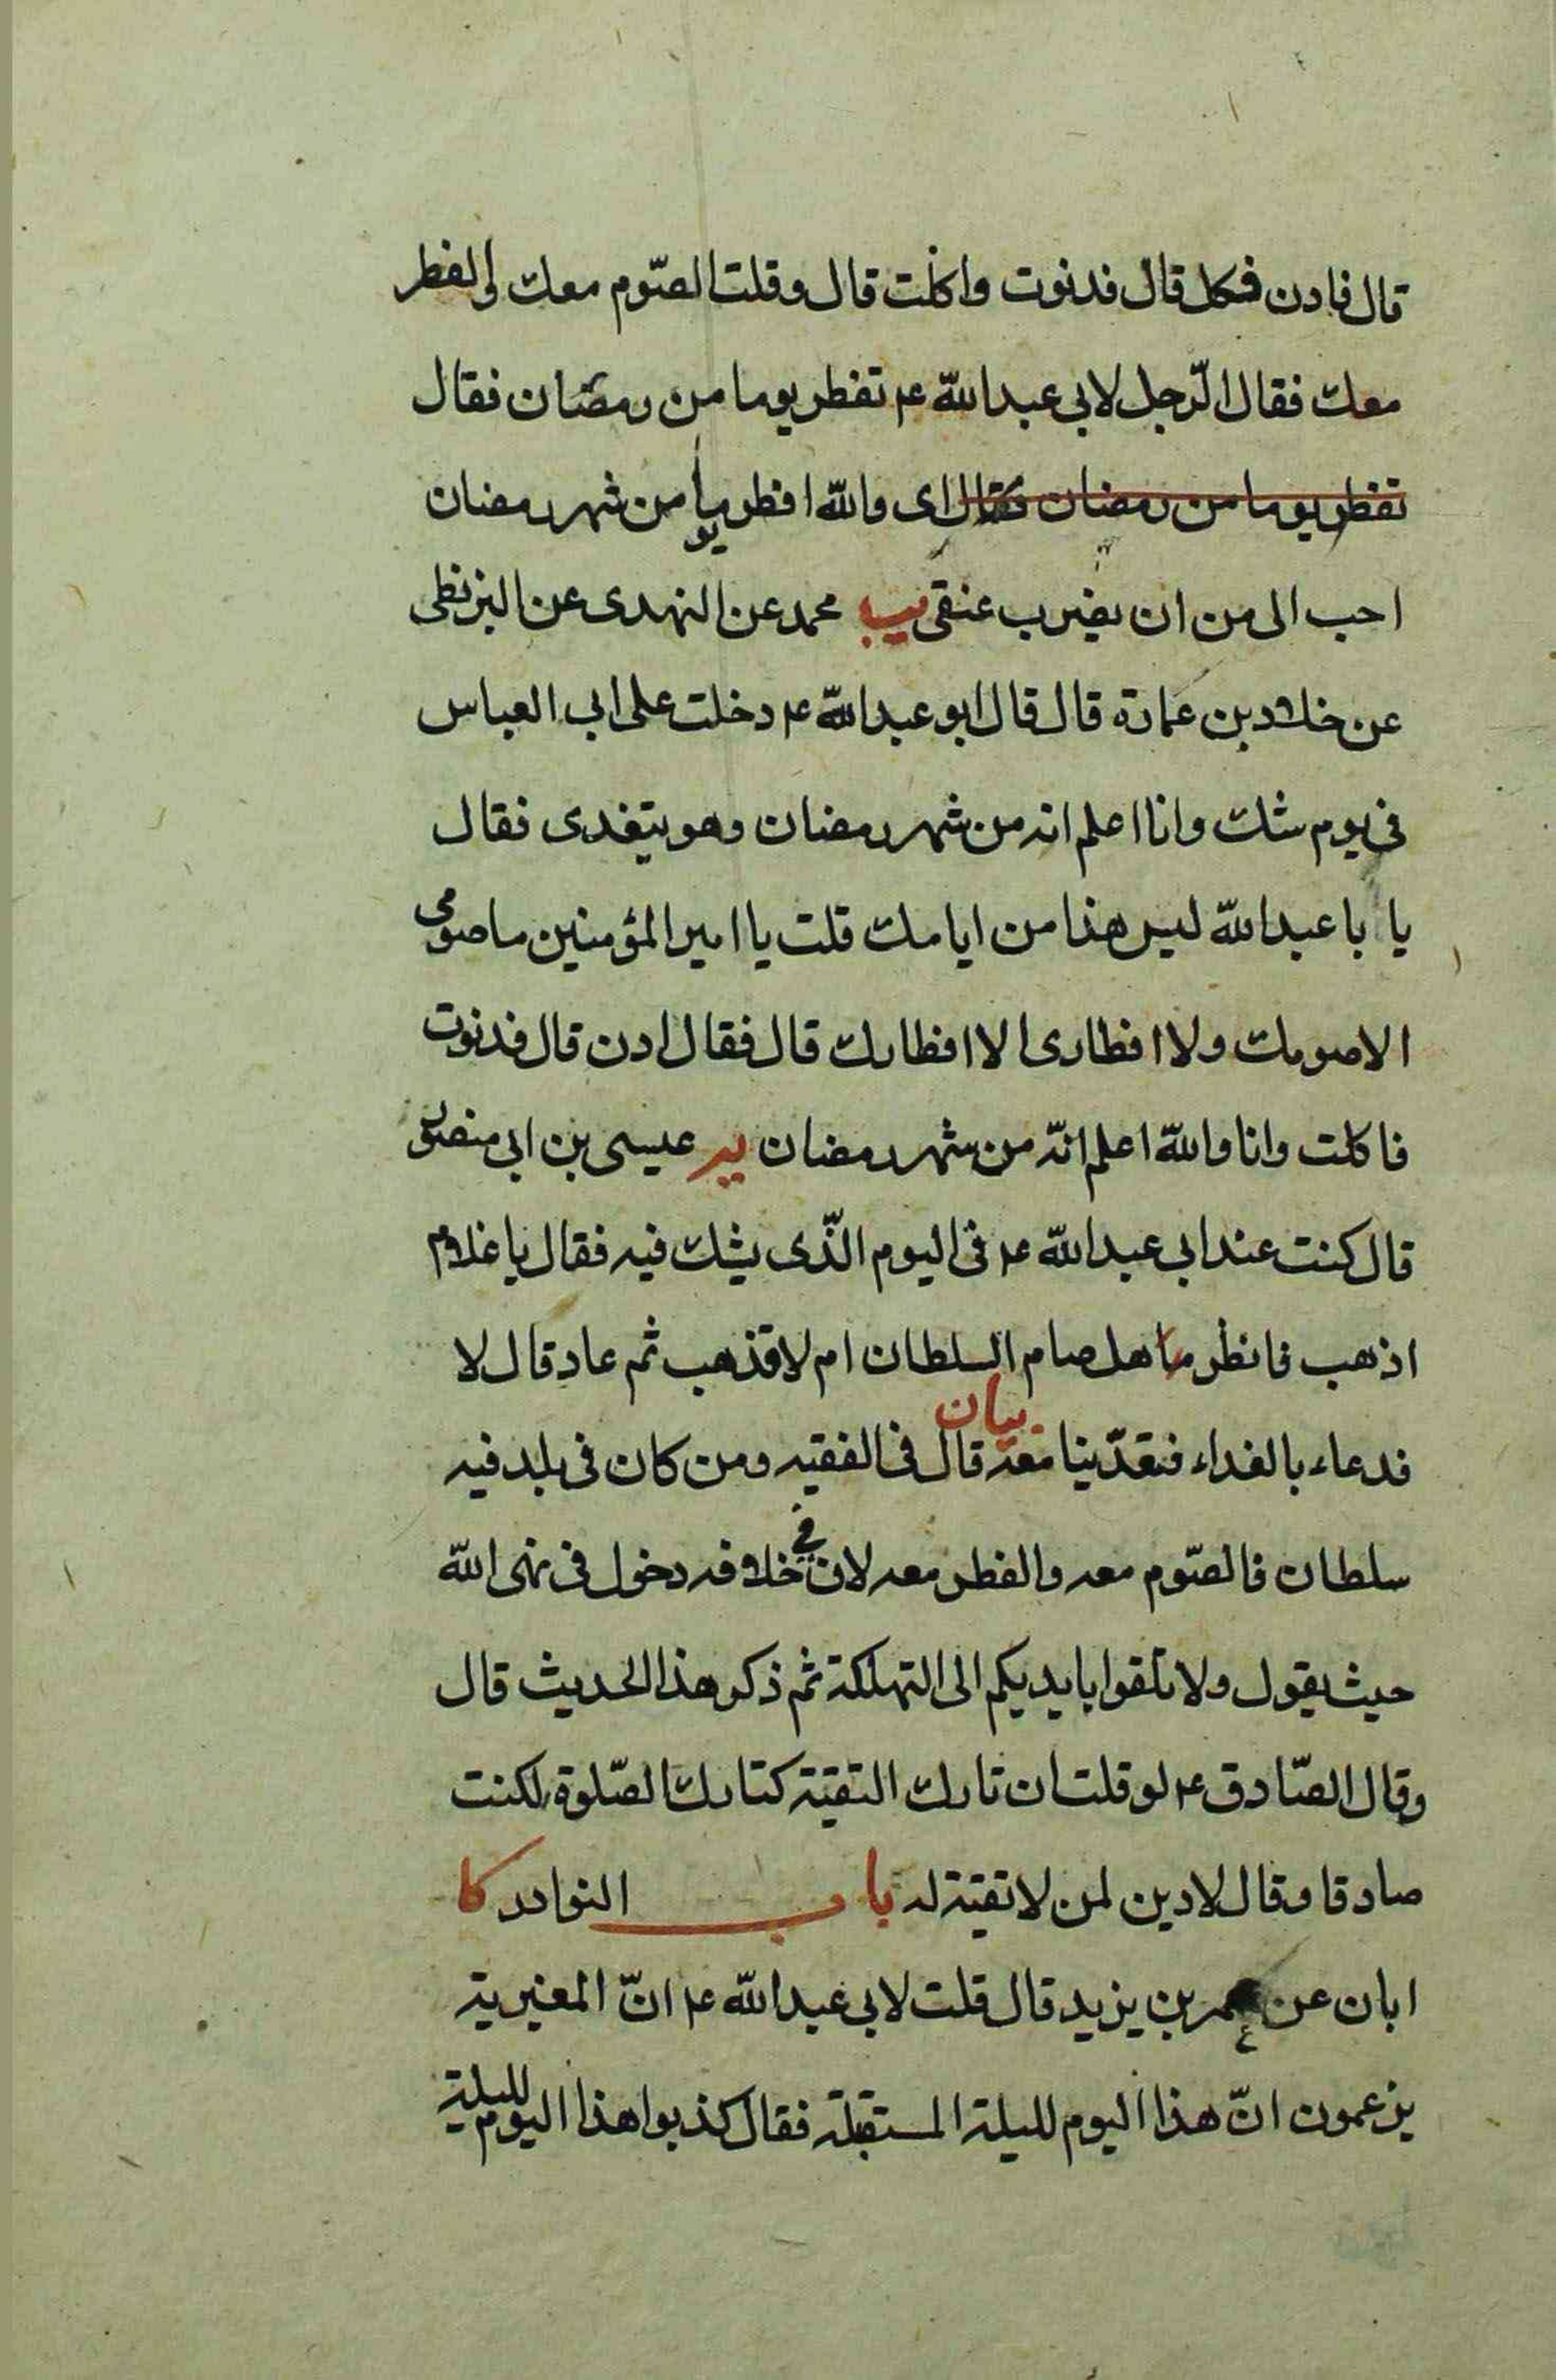 قال فادن فكل قال فدنوت واكلت قال وقلت الصّوم معك والفطر
معك فقال الرّجل لابي عبدالله ع تفطر يوما من رمضان فقال
تفطر يوما من رمضان فقال اى والله افطر يوما من شهر رمضان
احب الى من ان يضرب عنقى يب محمد عن النهدى عن البزنطى
عن خلاد بن عمارة قال قال ابو عبدالله ع دخلت على ابي العباس
فى يوم شك وانا اعلم انه من شهر رمضان وهو يتغدى فقال
يا با عبدالله ليس هذا من ايامك قلت يا امير المؤمنين ما صومى
الا صومك ولا افطارى الا افطارك قال فقال ادن قال فدنوت
فاكلت وانا والله اعلم انّه من شهر رمضان يه عيسى بن ابى منصور
قال كنت عند ابي عبدالله ع فى اليوم الّذى يشك فيه فقال يا غلام
اذهب فانظر ما هل صام السلطان ام لا فذهب ثم عاد قال لا
فدعاء بالغداء فتغدّينا معه بيان قال فى الفقيه ومن كان فى بلد فيه
سلطان فالصّوم معه والفطر معه لان فى خلافه دخول فى نهى الله
حيث يقول ولا تلقوا بايديكم الى التهلكة ثم ذكر هذا الحديث قال
وقال الصّادق ع لو قلت ان تارك التقيّة كتارك الصّلوة لكنت
صادقا وقال لا دين لمن لا تقية له باب النوادر كا
ابان عن عمر بن يزيد قال قلت لابي عبدالله ع انّ المغيرية
يزعمون انّ هذا اليوم لليلة المستقبلة فقال كذبوا هذا اليوم لليلة